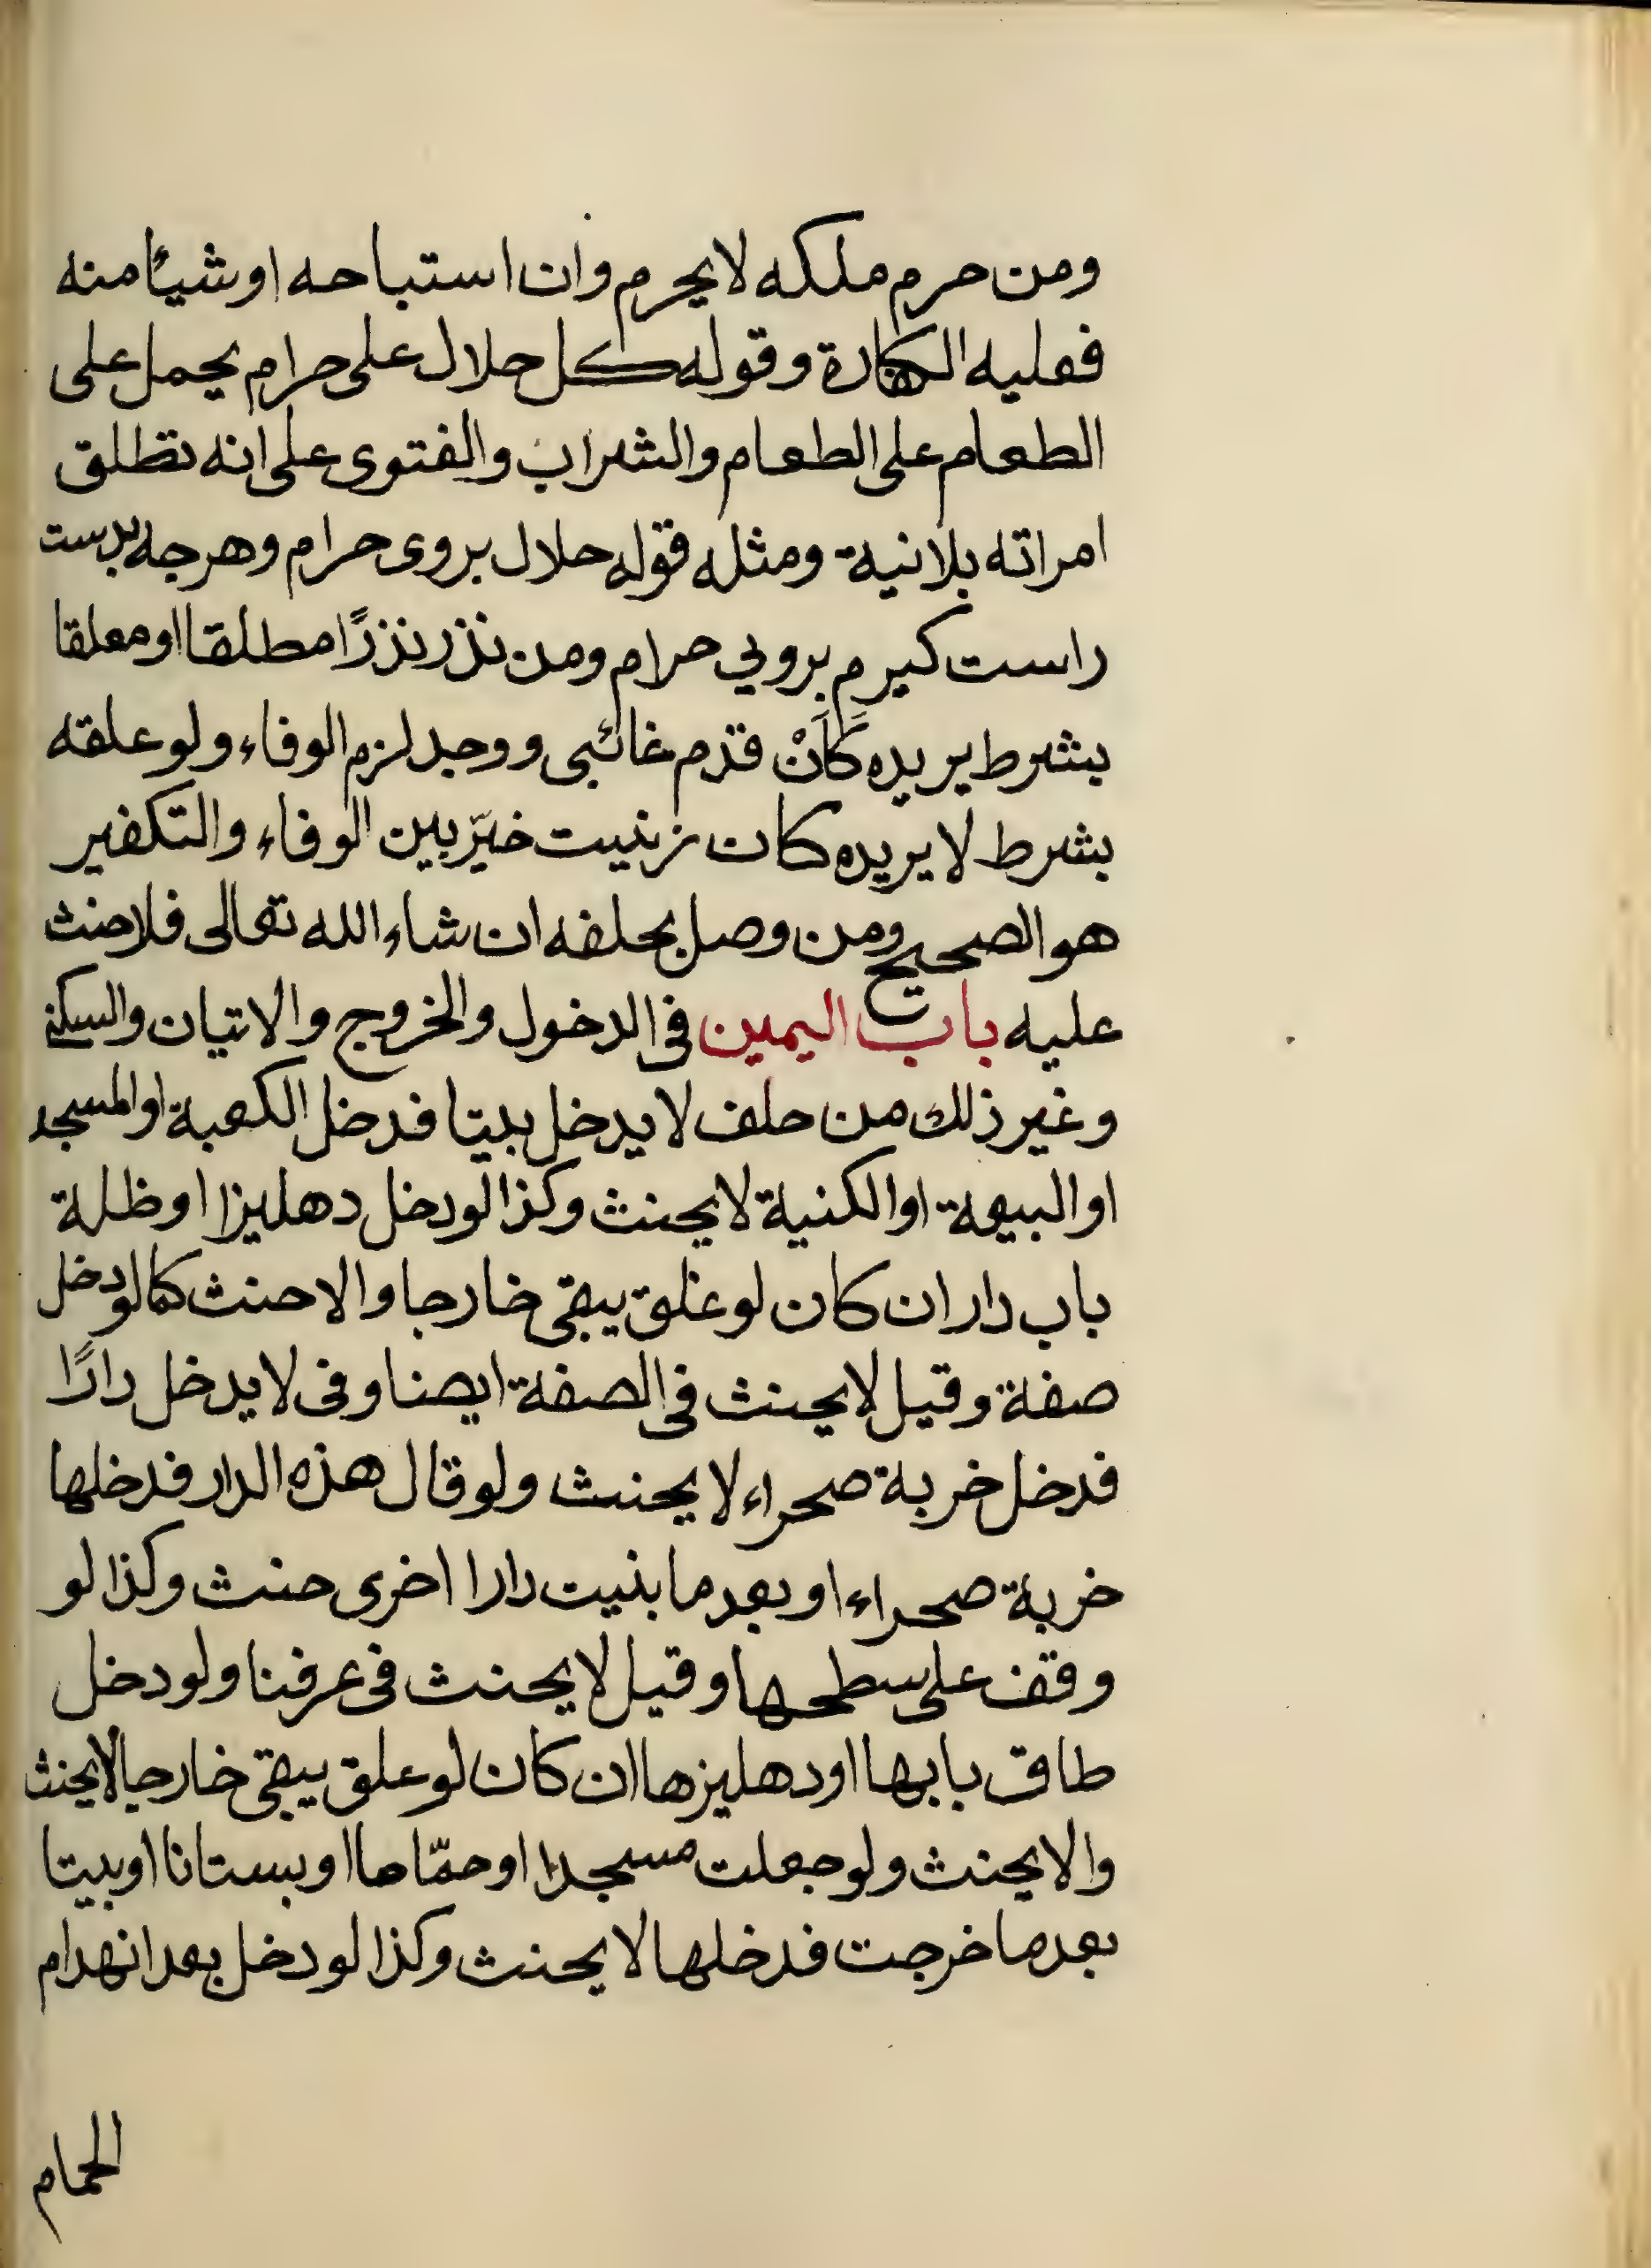 ومن حرم ملكه لا يحرم وان استباحه او شيئا منه
فعليه الكفارة وقوله كل حلال على حرام يحمل على
الطعام على الطعام والشراب والفتوى على انه تطلق
امراته بلا نية ومثله قوله حلال بروى حرام وهرجه بدست
راست كيرم بروي حرام ومن نذر نذرًا مطلقا او معلقا
بشرط يريده كَاَنْ قدم غائبى ووجد لزم الوفاء ولو علقه
بشرط لا يريده كان زنيت خيّر بين الوفاء والتكفير
هو الصحيح ومن وصل بحلفه ان شاء الله تعالى فلا حنث
عليه باب اليمين فى الدخول والخروج والاتيان والسكنى
وغير ذلك من حلف لا يدخل بيتا فدخل الكعبة او المسجد
او البيعة او الكنية لا يحنث وكذا لو دخل دهليزا او ظلة
باب دار ان كان لو غلق يبقى خارجا والا حنث كما لو دخل
صفة وقيل لا يحنث فى الصفة ايضا وفى لا يدخل دارًا
فدخل خربة صحراء لا يحنث ولو قال هذه الدار فدخلها
خربة صحراء او بعد ما بنيت دارا اخرى حنث وكذا لو
وقف على سطحها وقيل لا يحنث فى عرفنا ولو دخل
طاق بابها او دهليزها ان كان لو علق يبقى خارجا لا يحنث
والا يحنث ولو جعلت مسجدا او حمّاما او بستانا او بيتا
بعد ما خرجت فدخلها لا يحنث وكذا لو دخل بعد انهدام
الحمام